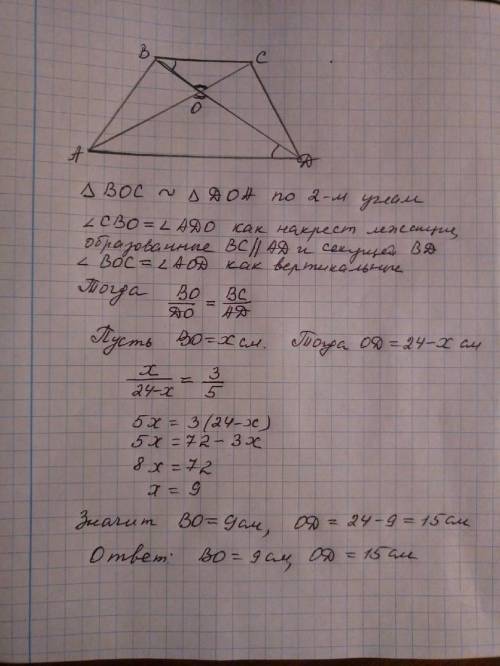 B C
O
A D
△ BOC ~ △ DOA по 2-м углам
∠CBO = ∠ADO как накрест лежащие,
образованные BC || AD и секущей BD
∠ BOC = ∠ AOD как вертикальные
Тогда BO/DO = BC/AD
Пусть BO = x см. Тогда OD = 24 - x см
x/24-x = 3/5
5x = 3(24-x)
5x = 72 - 3x
8x = 72
x = 9
Значит BO = 9 см, OD = 24 - 9 = 15 см
Ответ: BO = 9 см, OD = 15 см